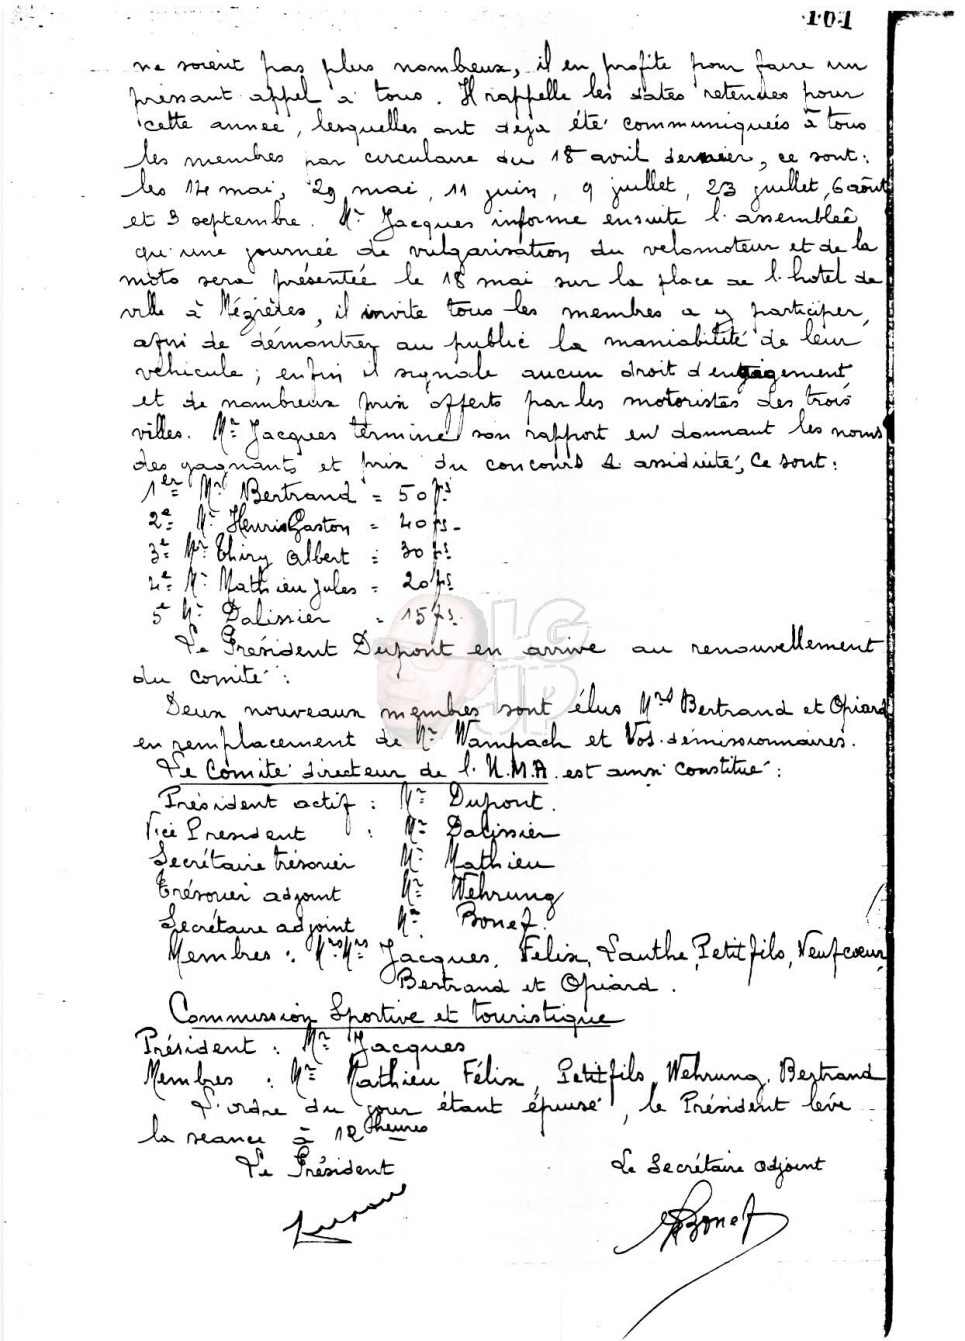 101
ne soient pas plus nombreux, il en profite pour faire un
pressant appel à tous. Il rappelle les dates retenues pour
cette année, lesquelles ont déjà été communiqueés à tous
les membres par circulaire du 18 avril dernier, ce sont:
les 14 mai, 29 mai, 11 juin, 9 juillet, 23 juillet, 6 août
et 3 septembre. Mr Jacques informe ensuite l'assembleé
qu'une journeé de vulgarisation du velomoteur et de la
moto sera présenteé le 18 mai sur la place de l'hotel de
ville à Mézières, il invite tous les membres a y participer,
afin de démontrer au public la maniabilité de leur
véhicule; enfin il signale aucun droit d'engagement
et de nombreux prix offerts par les motoristes des trois
villes. Mr Jacques termine son rapport en donnant les noms
des gagnants et prix du concours d'assiduité, ce sont:
1er Mr Bertrand = 50 frs
2e Mr Henris Gaston = 40 frs.
3e Mr Thiry Albert = 30 frs
4e Mr Mathieu Jules = 20 frs
5e Mr Dalissier = 15 frs.
Le Président Dupont en arrive au renouvellement
du comité:
LG UP
Deux nouveaux membres sont élus Mrs Bertrand et Opiard
en remplacement de Mr Wampach et Vos démissionnaires.
Le Comité directeur de l'U.M.A. est ainsi constitué:
Président actif : Mr Dupont.
Vice President : Mr Dalissier
Secrétaire trésorier Mr Mathieu
Trésorier adjoint Mr Wehrung
Secrétaire adjoint Mr Bonef.
Membres : Mrs Mrs Jacques, Félix, Lauthe, Petitfils, Neufcoeur,
Bertrand et Opiard.
Commission Sportive et touristique
Président : Mr Jacques
Membres : Mrs Mathieu, Félix, Petitfils, Wehrung, Bertrand
L'ordre du jour étant épuisé, le Président lève
la seance à 12 heures
Le Président Le Secrétaire adjoint
Bonef